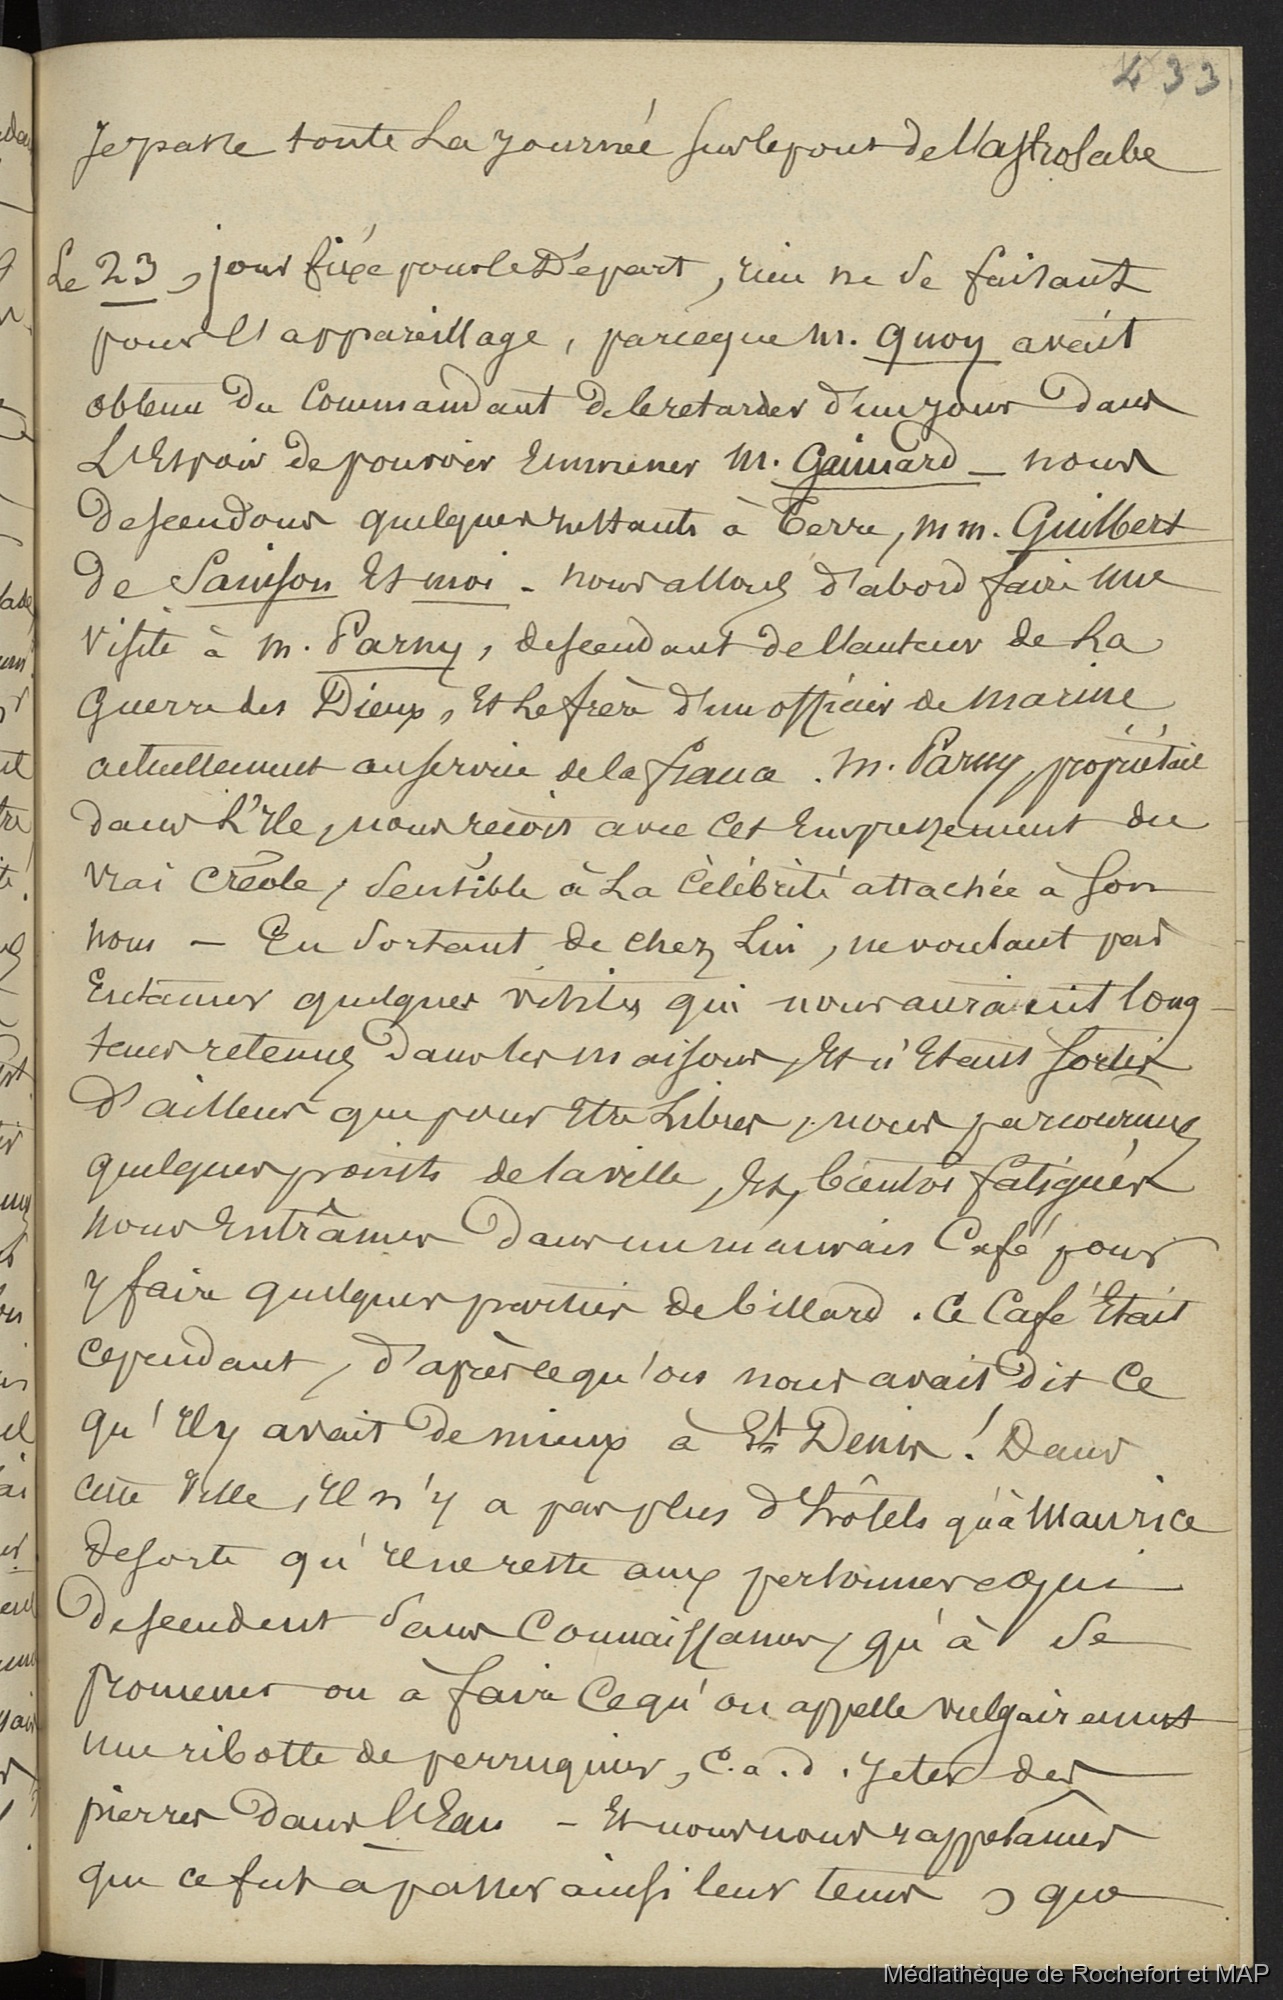 433
Je passe toute la journée sur le pont de l'astrolabe
Le 23, jour fixé pour le Départ, rien ne se faisant
pour l'appareillage, parceque M. Quoy avait
obtenu du Commandant de le retarder d'un jour dans
L'Espoir de pouvoir Emmener M. Gaimard – nous
descendons quelques instants à Terre, MM. Guilbert
de Sainson Et moi – nous allons d'abord faire une
visite à M. Parny, descendant de l'auteur de La
Guerre des Dieux, Et Le frère d'un officier de marine
actuellement au service de la france. M. Parny, propriétaire
dans L'Ile, nous reçoit avec cet Empressement du
vrai créole, sensible à La célébrité attachée à son
nom – En sortant de chez Lui, ne voulant pas
Entamer quelques visites qui nous auraient long-
tems retenus dans les maisons, Et n'Etant sortis
d'ailleurs que pour Etre Libres, nous parcourumes
quelques points de la ville, Et, bientôt fatigués
nous Entrâmes dans un mauvais Café pour
y faire quelques parties de billard. Ce Café Etait
cependant, d'après ce qu'on nous avait dit Ce
qu'Il y avait de mieux à St Denis ! Dans
cette Ville, Il n'y a pas plus d'hôtels qu'à Maurice
de sorte qu'Il ne reste aux personnes qui
descendent sans Connaissances, qu'à se
promener ou à faire Ce qu'on appelle vulgairement
une ribotte de perruquier, C.a.d. jeter des
pierres dans l'Eau – Et nous nous rappelâmes
que ce fut à passer ainsi leur tems, que
Médiathèque de Rochefort et MAP